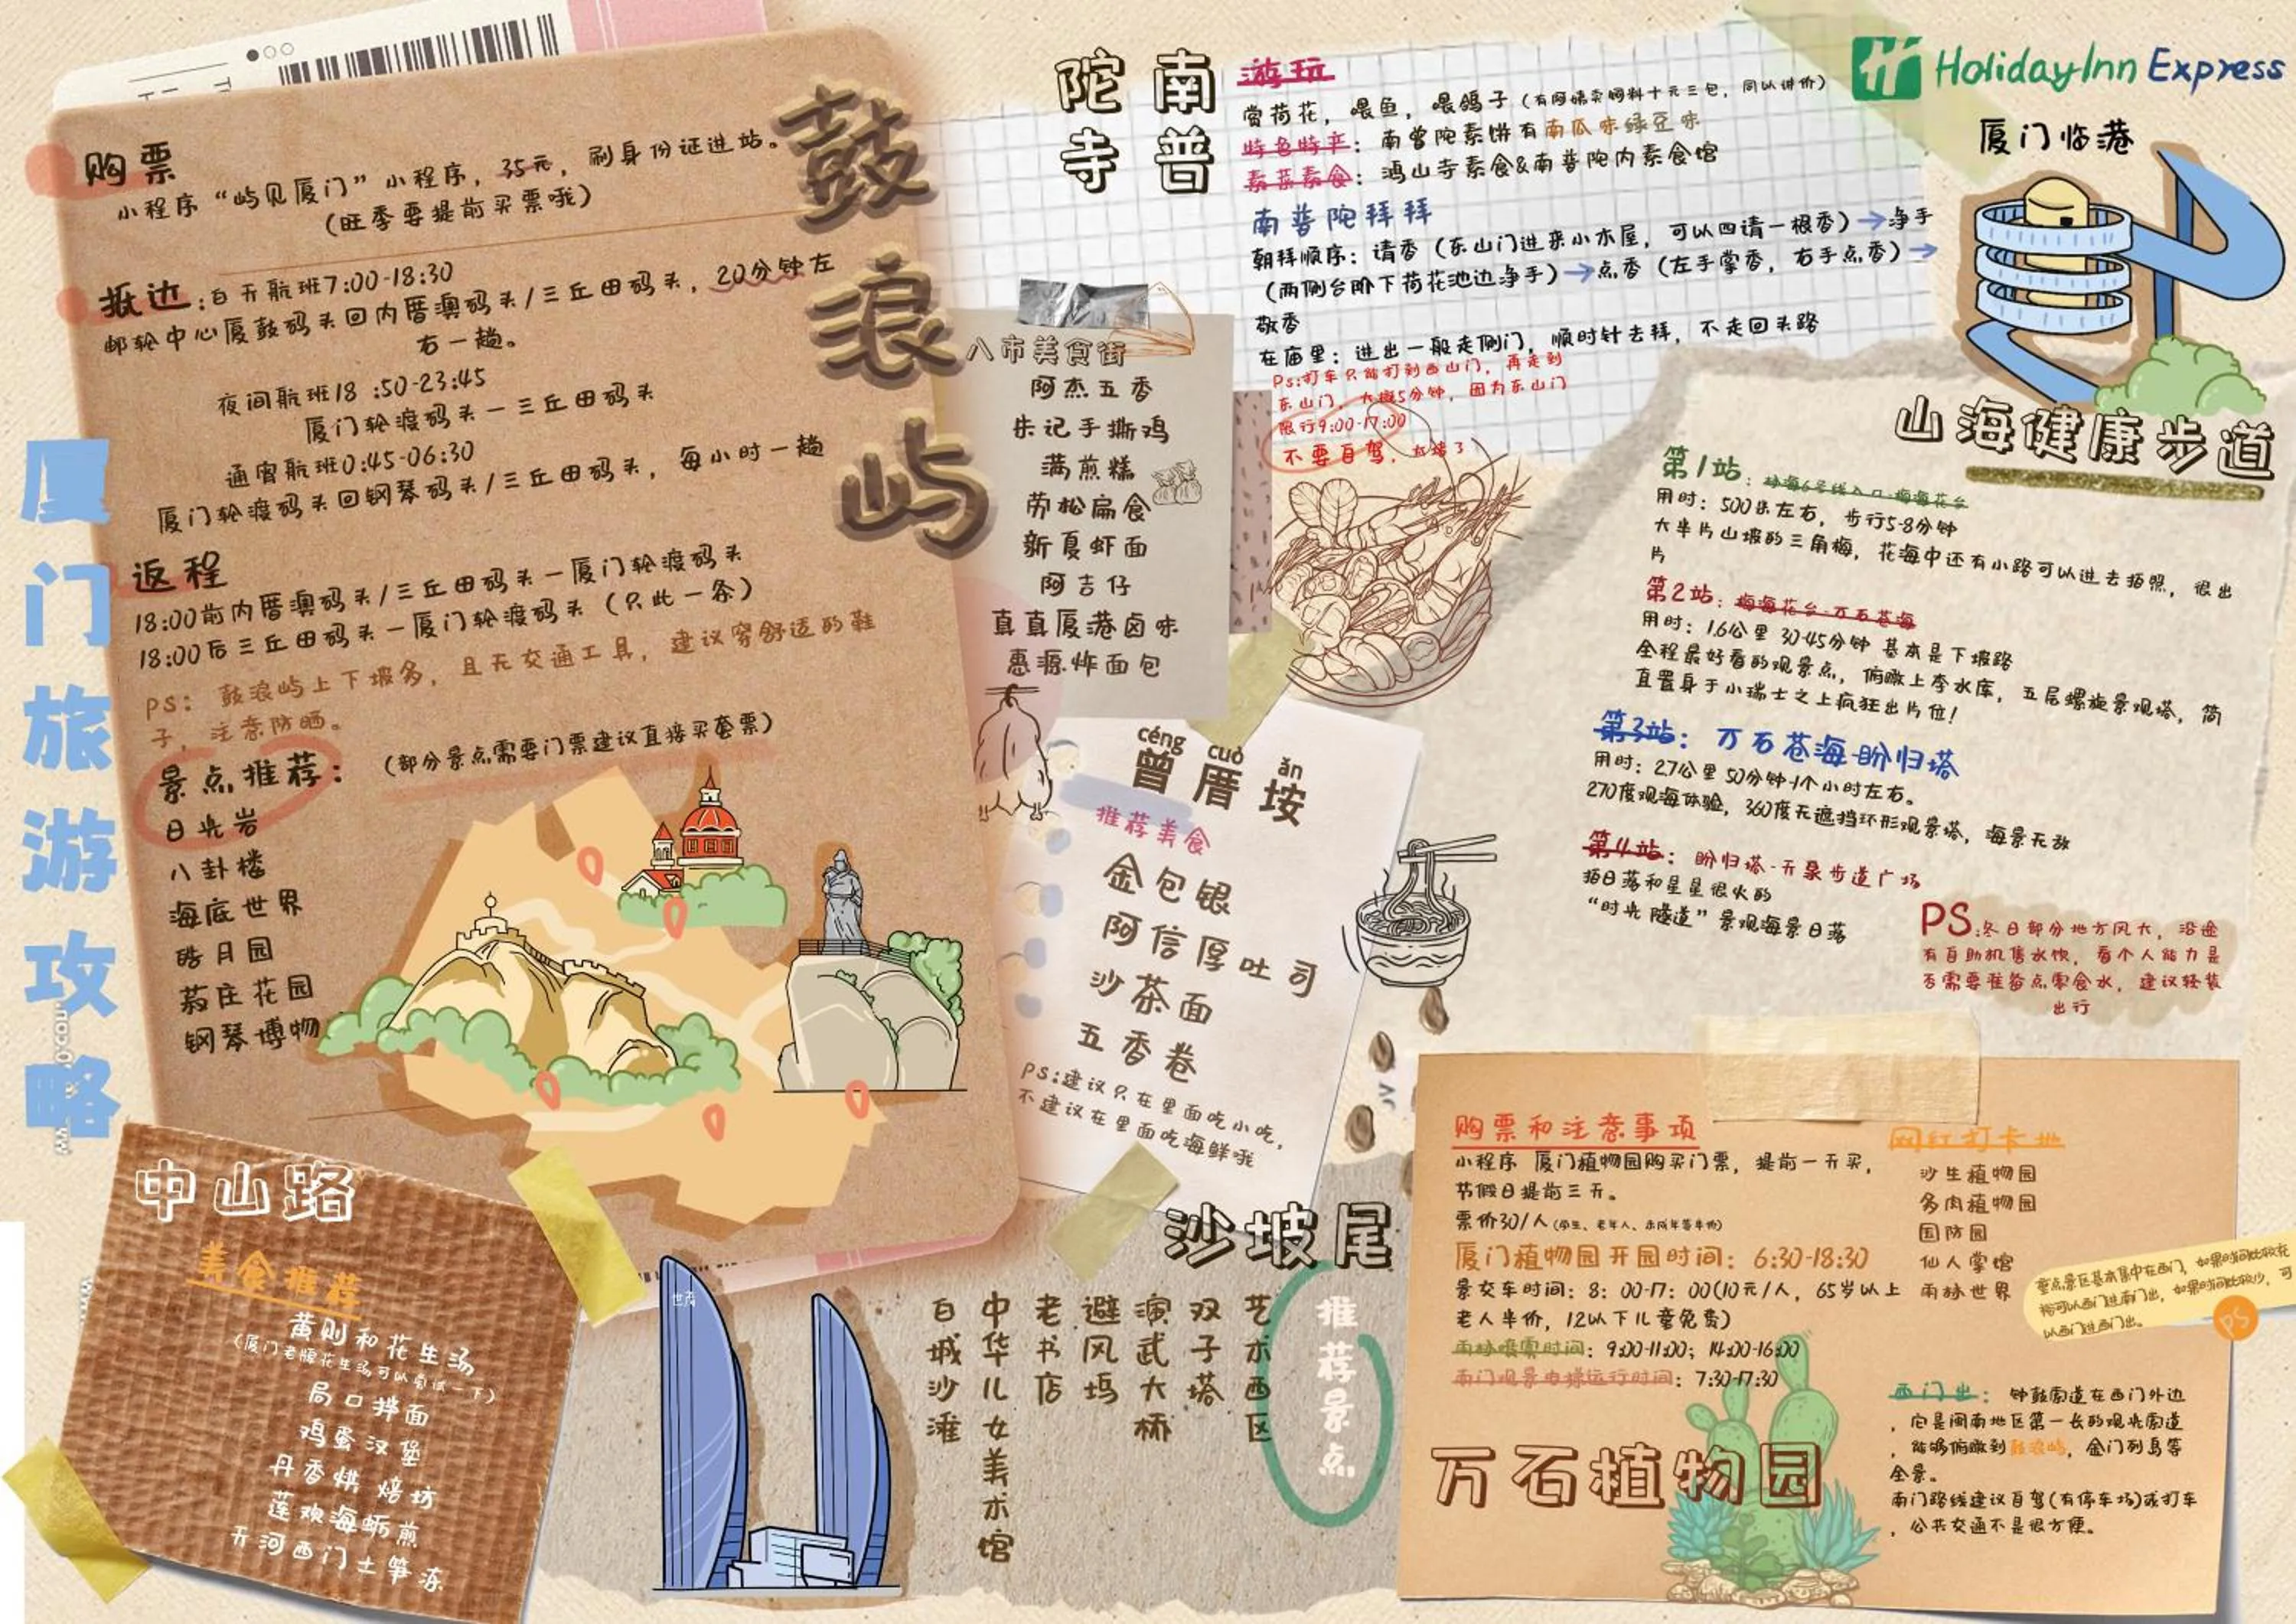 厦门旅游攻略
鼓浪屿
购票
小程序“屿见厦门”小程序，35元，刷身份证进站。
(旺季要提前买票哦)
抵达:白天航班7:00-18:30
邮轮中心厦鼓码头回内厝澳码头/三丘田码头，20分钟左
右一趟。
夜间航班18:50-23:45
厦门轮渡码头－三丘田码头
通宵航班0:45-06:30
厦门轮渡码头回钢琴码头/三丘田码头，每小时一趟
返程
18:00前内厝澳码头/三丘田码头－厦门轮渡码头
18:00后三丘田码头－厦门轮渡码头（只此一条）
PS：鼓浪屿上下坡多，且无交通工具，建议穿舒适的鞋
子，注意防晒。
景点推荐：（部分景点需要门票建议直接买套票）
日光岩
八卦楼
海底世界
皓月园
菽庄花园
钢琴博物
中山路
美食推荐
黄则和花生汤
(厦门老牌花生汤可以尝试一下)
局口拌面
鸡蛋汉堡
丹香烘焙坊
莲欢海蛎煎
天河西门土笋冻
南普陀寺
游玩
赏荷花，喂鱼，喂鸽子（有阿姨卖饲料十元三包，可以讲价）
特色特产：南普陀素饼有南瓜味绿豆味
素菜素食：鸿山寺素食&南普陀内素食馆
南普陀拜拜
朝拜顺序：请香（东山门进来小木屋，可以四请一根香）→净手
（两侧台阶下荷花池边净手）→点香（左手掌香，右手点香）→
敬香
在庙里：进出一般走侧门，顺时针去拜，不走回头路
Ps:打车只能打到西山门，再走到
东山门，大概5分钟，因为东山门
限行9:00-17:00
不要自驾，太堵了
八市美食街
阿杰五香
朱记手撕鸡
满煎糕
劳松扁食
新夏虾面
阿吉仔
真真厦港卤味
惠源炸面包
céng cuò ǎn
曾厝垵
推荐美食
金包银
阿信厚吐司
沙茶面
五香卷
PS:建议只在里面吃小吃，
不建议在里面吃海鲜哦
沙坡尾
推荐景点
艺术西区
双子塔
演武大桥
避风坞
老书店
中华儿女美术馆
白城沙滩
世茂
Holiday Inn Express
厦门临港
山海健康步道
第1站：林海6号线入口-梅海花台
用时：500米左右，步行5-8分钟
大半片山坡的三角梅，花海中还有小路可以进去拍照，很出
片
第2站：梅海花台-万石苍海
用时：1.6公里 30-45分钟 基本是下坡路
全程最好看的观景点，俯瞰上李水库，五层螺旋景观塔，简
直置身于小瑞士之上疯狂出片位！
第3站：万石苍海-盼归塔
用时：2.7公里 50分钟-1个小时左右。
270度观海体验，360度无遮挡环形观景塔，海景无敌
第4站：盼归塔-天象步道广场
拍日落和星星很火的
“时光隧道”景观海景日落
PS:冬日部分地方风大，沿途
有自助机售水饮，看个人能力是
否需要准备点零食水，建议轻装
出行
万石植物园
购票和注意事项
小程序 厦门植物园购买门票，提前一天买，
节假日提前三天。
票价30/人(学生、老年人、未成年等半价)
厦门植物园开园时间：6:30-18:30
景交车时间：8：00-17：00(10元/人，65岁以上
老人半价，12以下儿童免费)
雨林喷雾时间：9:00-11:00；14:00-16:00
南门观景电梯运行时间：7:30-17:30
网红打卡地
沙生植物园
多肉植物园
国防园
仙人掌馆
雨林世界
重点景区基本集中在西门，如果时间比较充
裕可以西门进南门出，如果时间比较少，可
以西门进西门出。
PS
西门出：钟鼓索道在西门外边
，它是闽南地区第一长的观光索道
，能够俯瞰到鼓浪屿，金门列岛等
全景。
南门路线建议自驾(有停车场)或打车
，公共交通不是很方便。